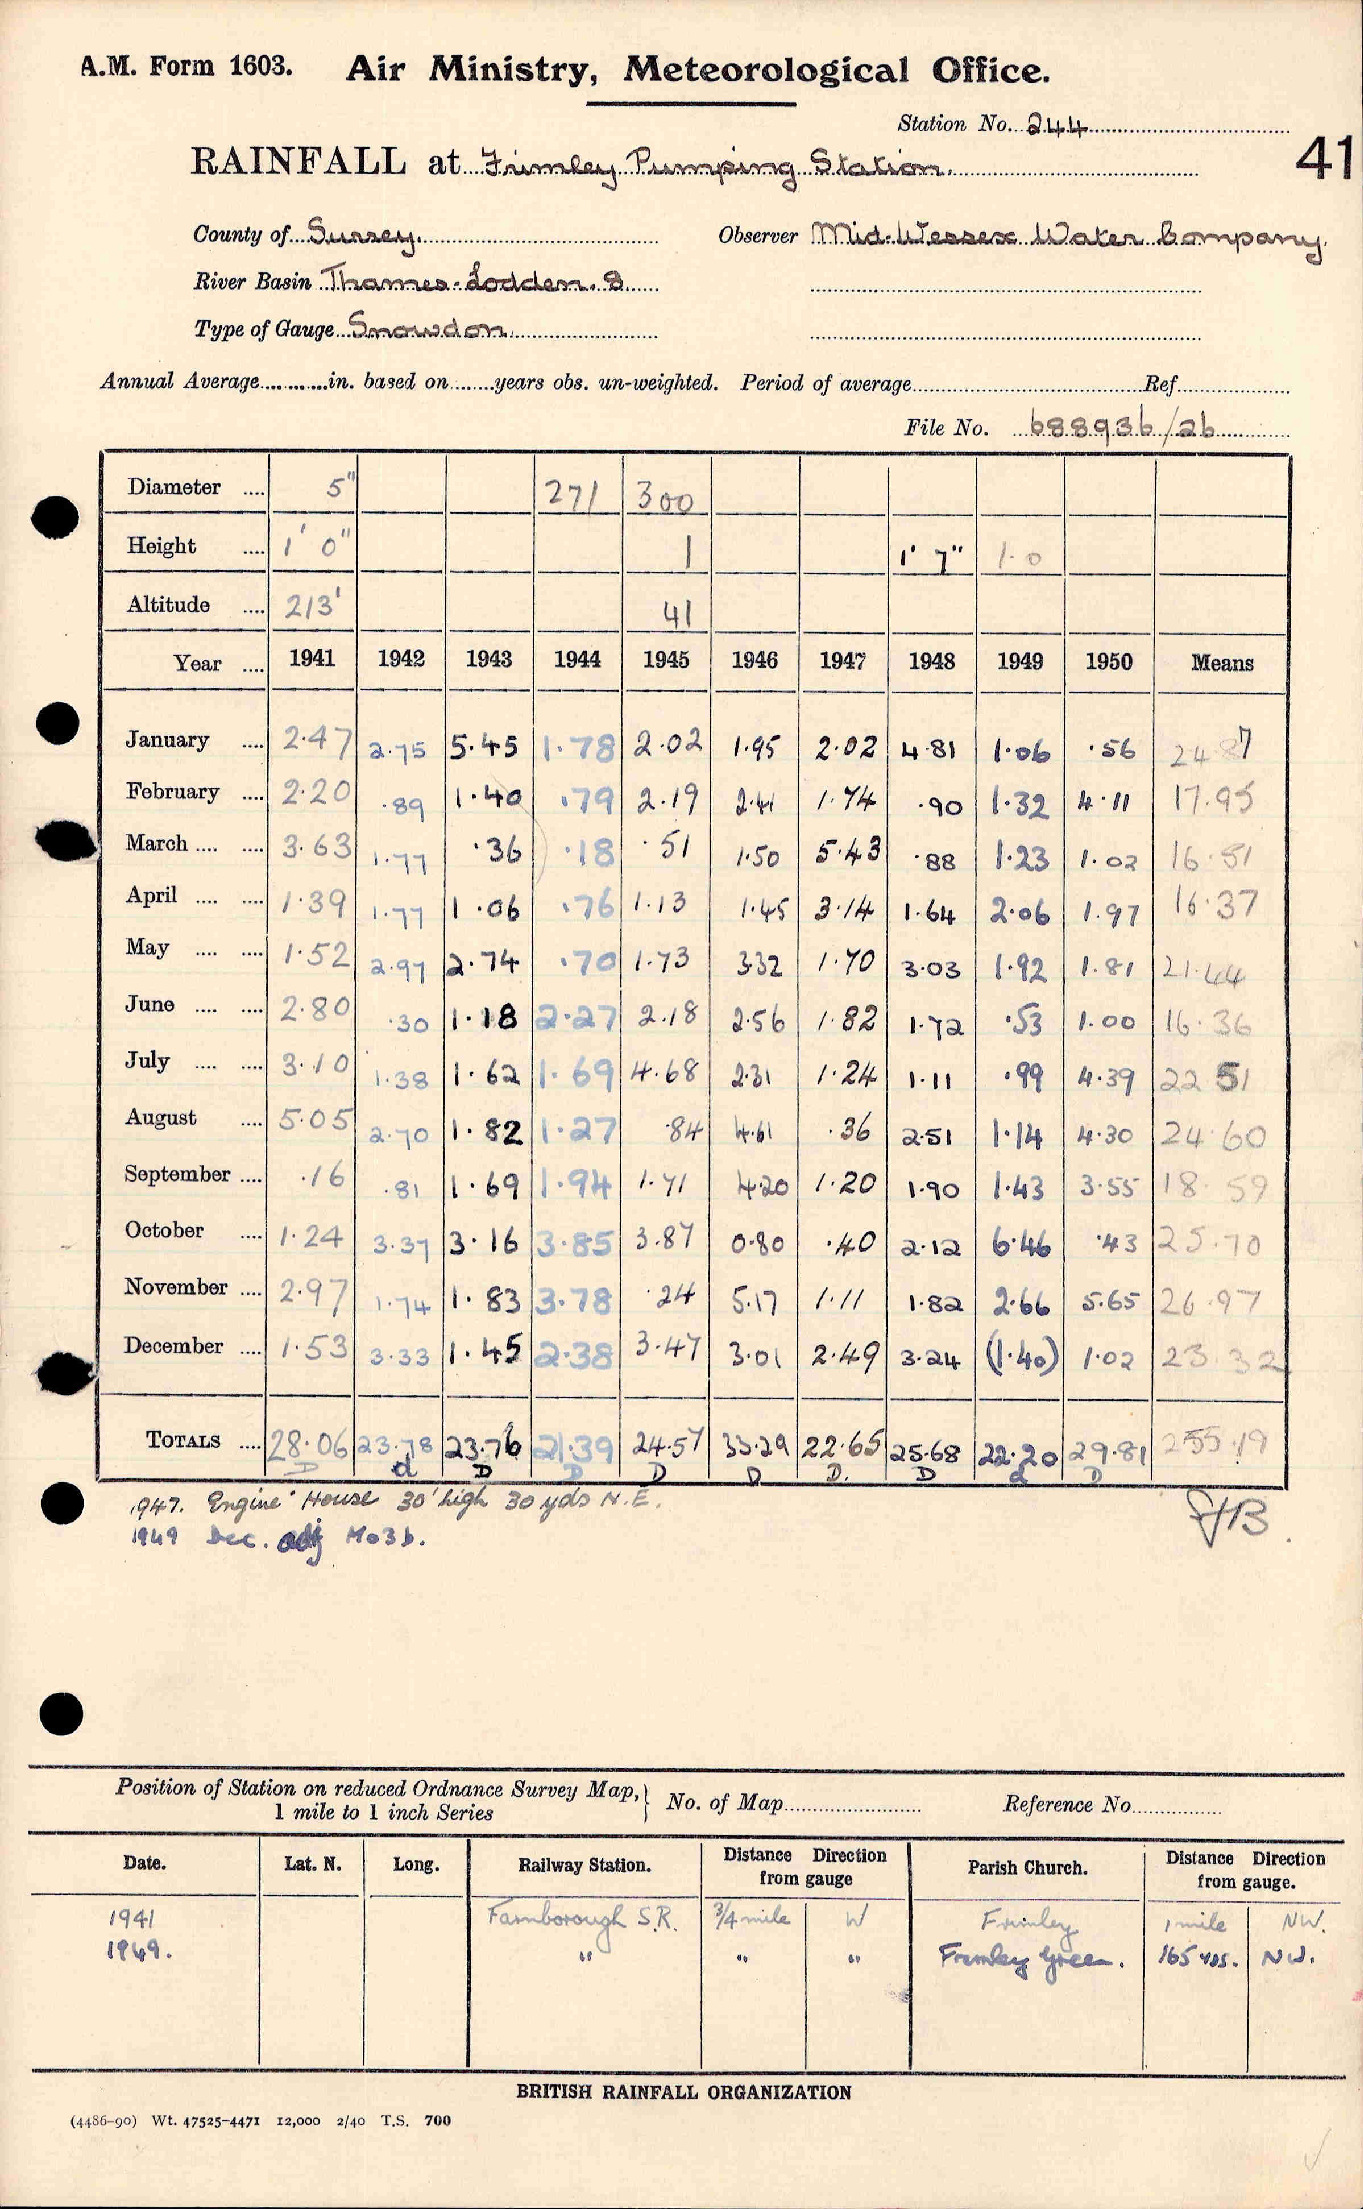 A.M. Form 1603. Air Ministry, Meteorological Office.
Station No. 244
41
RAINFALL at Frimley Pumping Station.
County of Surrey. Observer Mid. Wessex Water Company.
River Basin Thames. Lodden. 8
Type of Gauge Snowdon
Annual Average in. based on years obs. un-weighted. Period of average Ref.
File No. 688936/26
Diameter 5" 271 300
Height 1' 0" 1 1' 7" 1.0
Altitude 213' 41
Year 1941 1942 1943 1944 1945 1946 1947 1948 1949 1950 Means
January 2.47 2.75 5.45 1.78 2.02 1.95 2.02 4.81 1.06 .56 24.87
February 2.20 .89 1.40 .79 2.19 2.41 1.74 .90 1.32 4.11 17.95
March 3.63 1.77 .36 .18 .51 1.50 5.43 .88 1.23 1.02 16.51
April 1.39 1.77 1.06 .76 1.13 1.45 3.14 1.64 2.06 1.97 16.37
May 1.52 2.97 2.74 .70 1.73 3.32 1.70 3.03 1.92 1.81 21.44
June 2.80 .30 1.18 2.27 2.18 2.56 1.82 1.72 .53 1.00 16.36
July 3.10 1.38 1.62 1.69 4.68 2.31 1.24 1.11 .99 4.39 22 51
August 5.05 2.70 1.82 1.27 .84 4.61 .36 2.51 1.14 4.30 24 60
September .16 .81 1.69 1.94 1.71 4.20 1.20 1.90 1.43 3.55 18.59
October 1.24 3.37 3.16 3.85 3.87 0.80 .40 2.12 6.46 .43 25.70
November 2.97 1.74 1.83 3.78 .24 5.17 1.11 1.82 2.66 5.65 26.97
December 1.53 3.33 1.45 2.38 3.47 3.01 2.49 3.24 (1.40) 1.02 23.32
TOTALS 28.06 23.78 23.76 21.39 24.57 33.29 22.65 25.68 22.20 29.81 255.19
D d D D D D D. D d D
1947. Engine House 30' high 30 yds N.E.
1949 Dec. adj Mo3b.
Position of Station on reduced Ordnance Survey Map, 1 mile to 1 inch Series No. of Map Reference No.
Date. Lat. N. Long. Railway Station. Distance Direction from gauge Parish Church. Distance Direction from gauge.
1941 Farnborough S.R. 3/4 mile W Frimley 1 mile NW.
1949. " " " Frimley Green. 165 yds. NW.
BRITISH RAINFALL ORGANIZATION
(4486-90) Wt. 47525-4471 12,000 2/40 T.S. 700